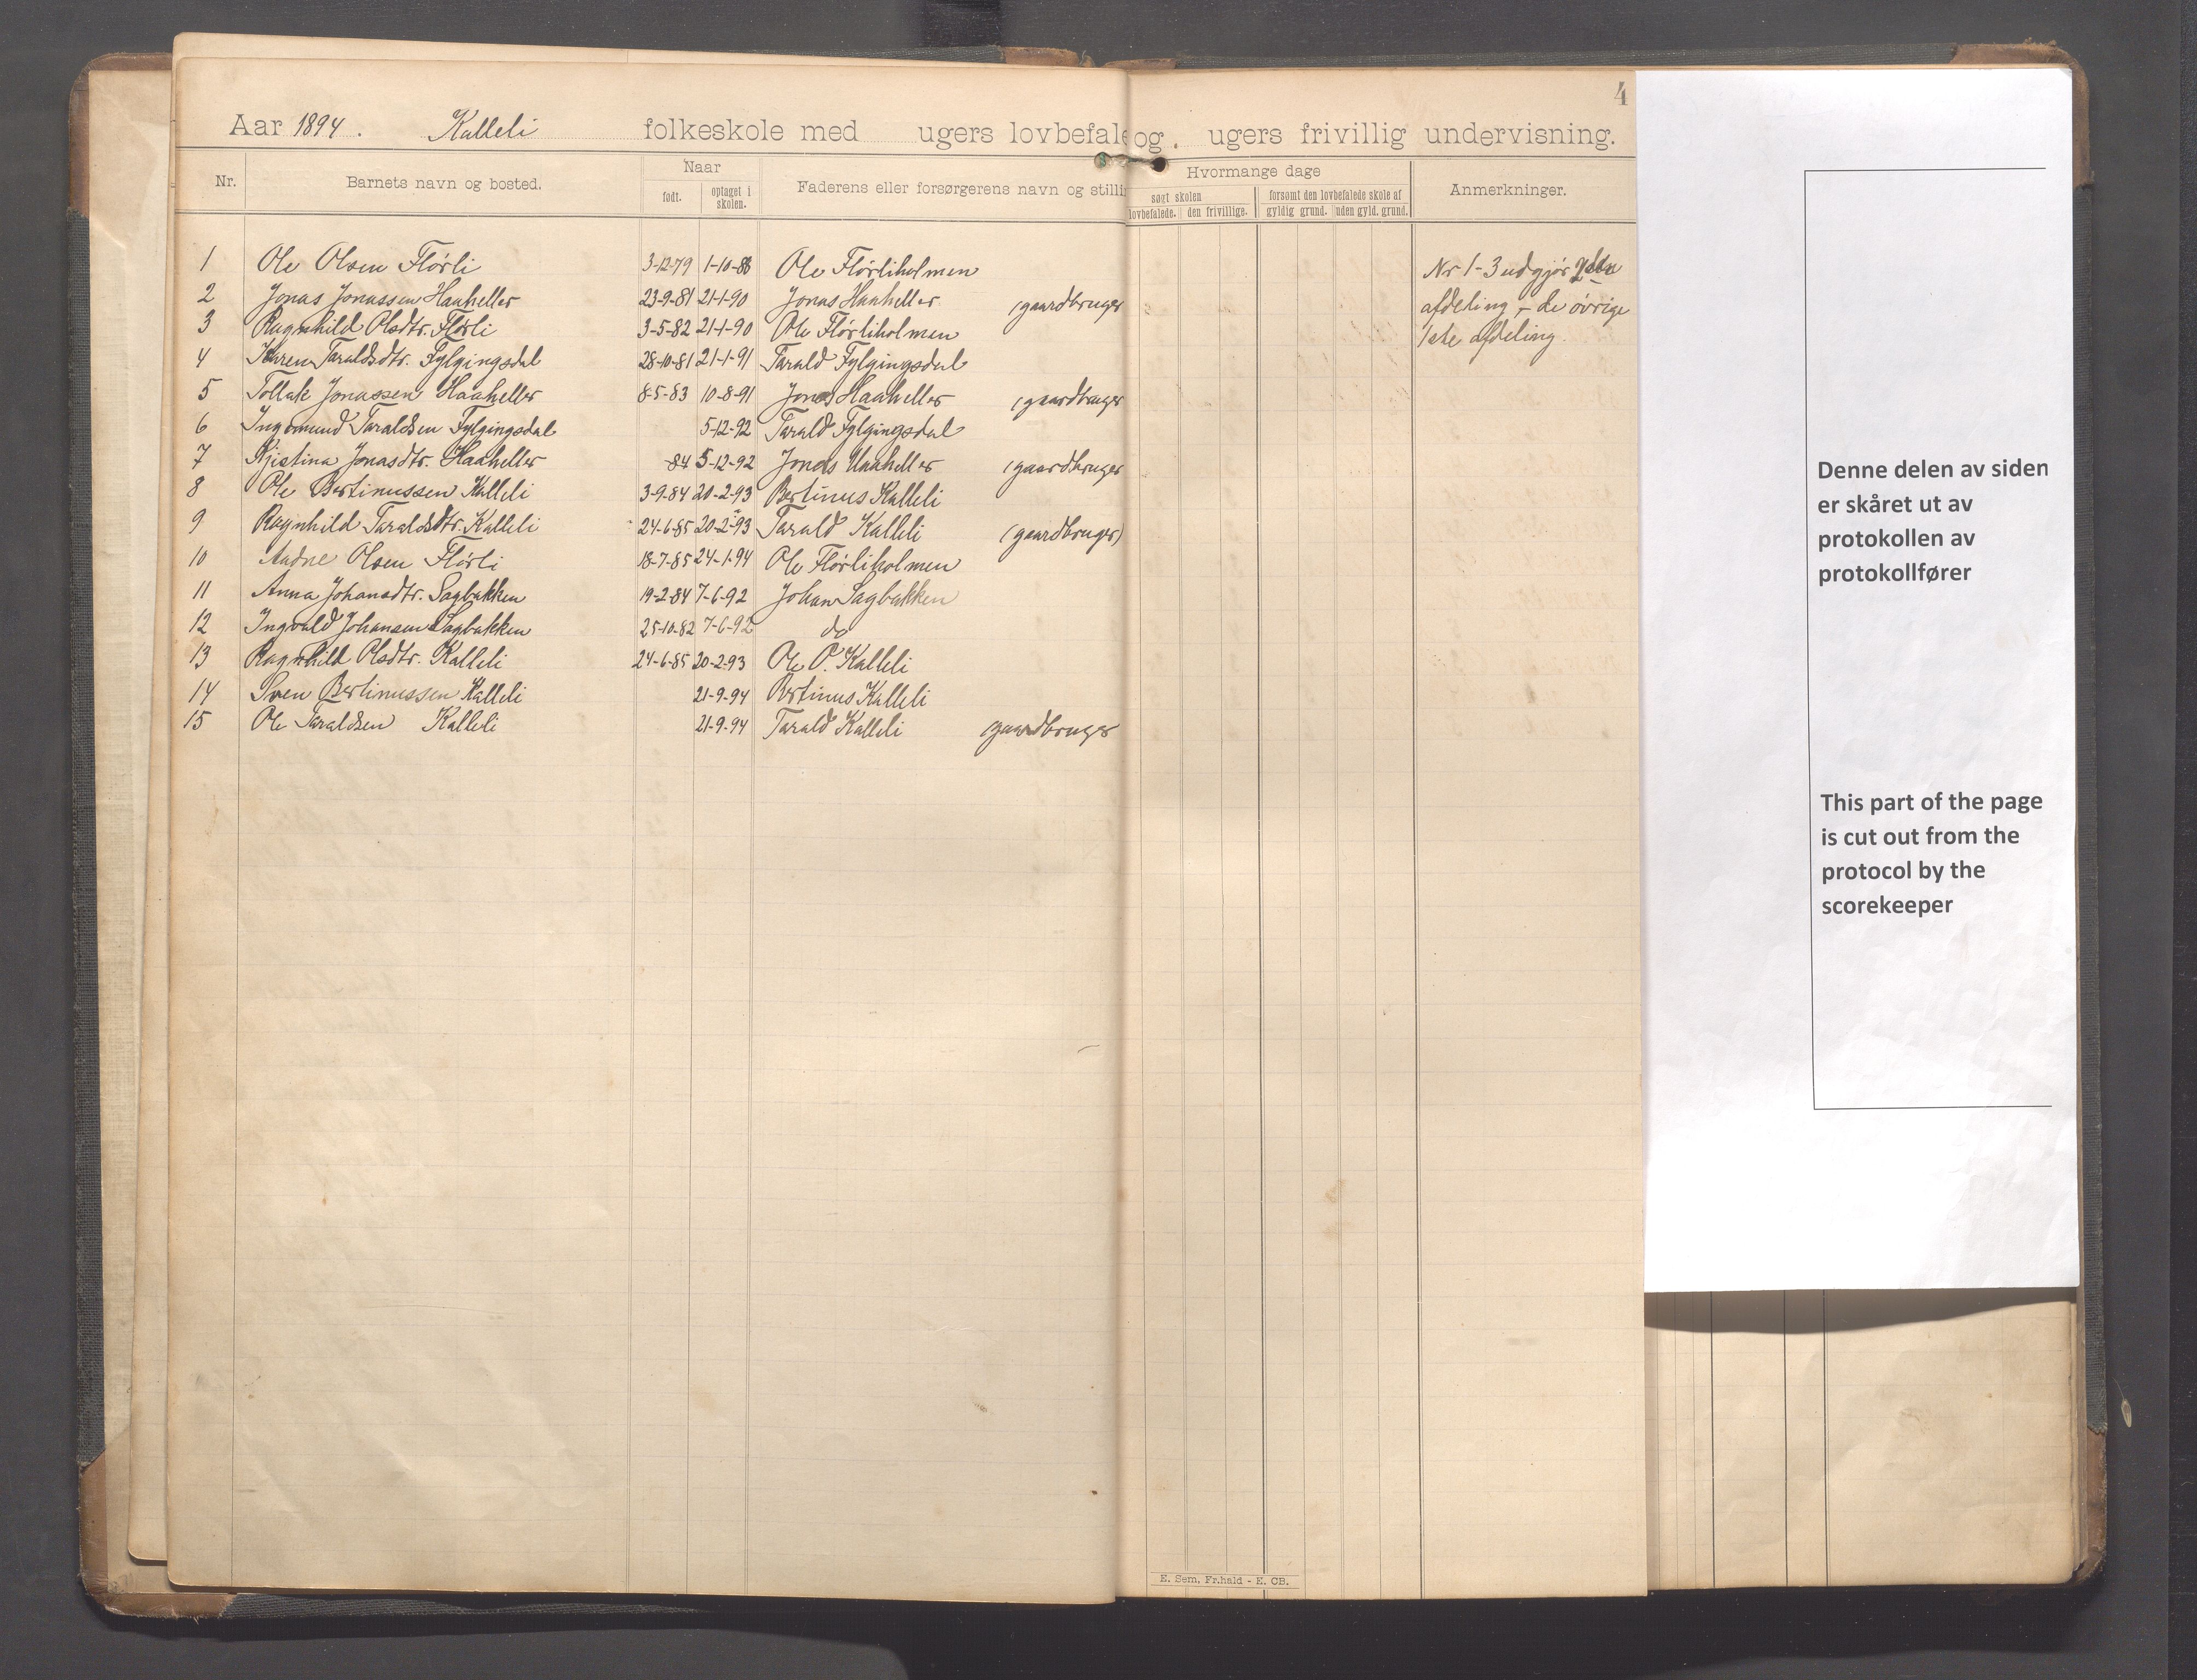 4
Aar 1894. Kalleli folkeskole med ugers lovbefale og ugers frivillig undervisning.
Nr. Barnets navn og bosted. Naar født. optaget i skolen. Faderens eller forsørgerens navn og stilli Hvormange dage søgt skolen lovbefalede. den frivillige. forsømt den lovbefalede skole af gyldig grund. uden gyld. grund. Anmerkninger.
1 Ole Olsen Flørli 3-12-79 1-10-88 Ole Flørliholmen Nr 1-3 udgjør 2den
2 Jonas Jonassen Haaheller 23-9-81 21-1-90 Jonas Haaheller (gaardbruger afdeling - de øvrige
3 Ragnhild Olsdtr. Flørli 3-5-82 21-1-90 Ole Flørliholmen 1ste afdeling.
4 Karen Taraldsdtr. Fylgingsdal 28-10-81 21-1-91 Tarald Fylgingsdal
5 Tollak Jonassen Haaheller 8-5-83 10-8-91 Jonas Haaheller (gaardbruger
6 Ingomund Taraldsen Fylgingsdal 5-12-92 Tarald Fylgingsdal
7 Kjistina Jonasdtr. Haaheller 84 5-12-92 Jonas Haaheller (gaardbruger
8 Ole Bertinussen Kalleli 3-9-84 20-2-93 Bertinus Kalleli
9 Ragnhild Taraldsdtr. Kalleli 24-6-85 20-2-93 Tarald Kalleli (gaardbruger)
10 Andne Olsen Flørli 18-7-85 24-1-94 Ole Flørliholmen
11 Anna Johansdtr. Sagbakken 19-2-84 7-6-92 Johan Sagbakken
12 Ingvald Johansen Sagbakken 25-10-82 7-6-92 do
13 Ragnhild Olsdtr. Kalleli 24-6-85 20-2-93 Ole O. Kalleli
14 Sven Bertinussen Kalleli 21-9-94 Bertinus Kalleli
15 Ole Taraldsen Kalleli 21-9-94 Tarald Kalleli (gaardbruger
E. Sem, Fr.hald - E. CB.
Denne delen av siden
er skåret ut av
protokollen av
protokollfører
This part of the page
is cut out from the
protocol by the
scorekeeper